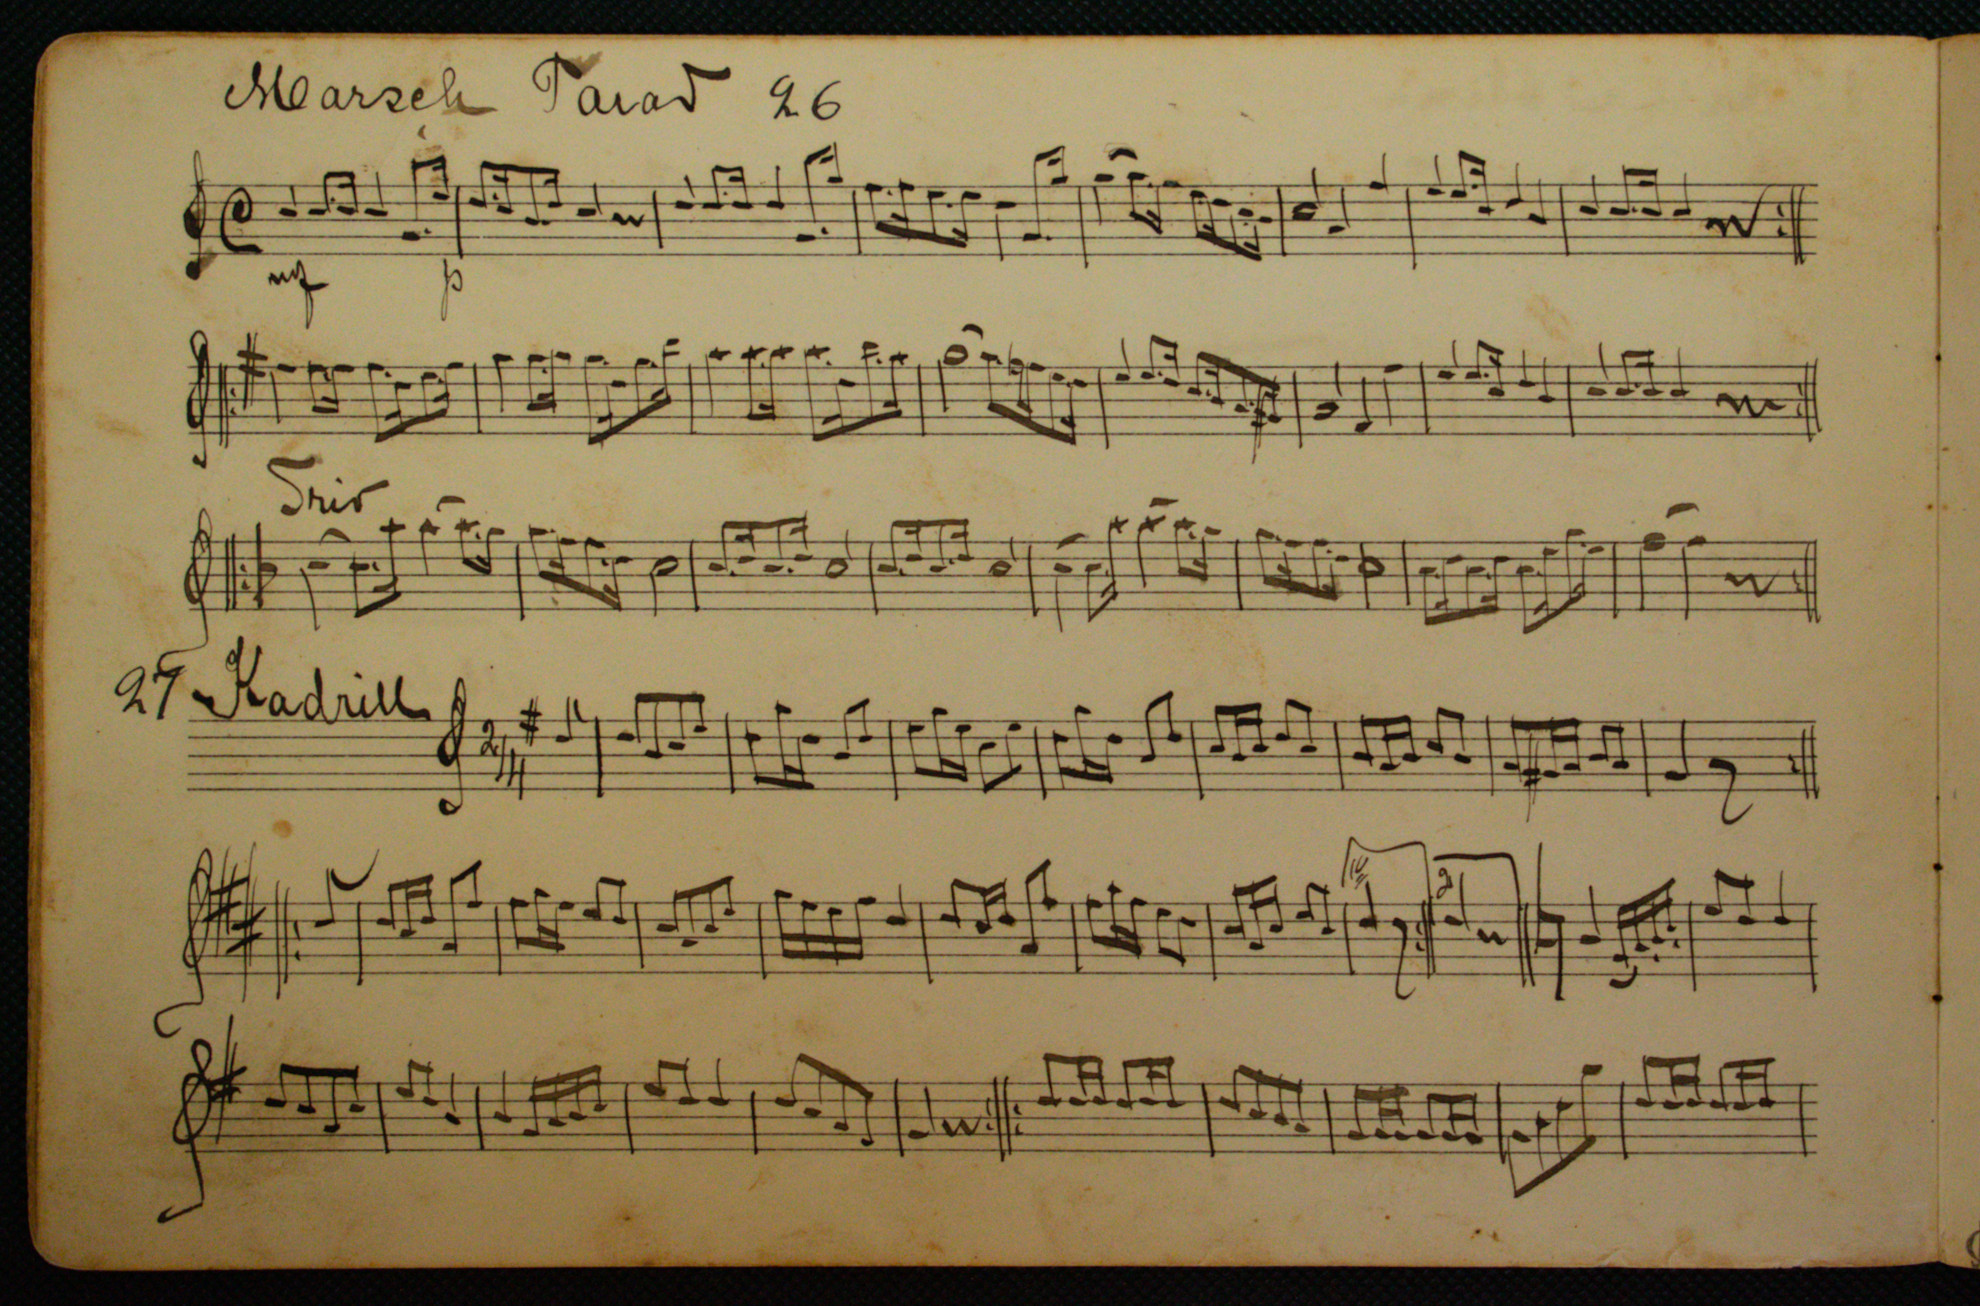 Marsch Parad 26
mf p
Trio
27 Kadrill
2/4
1 2